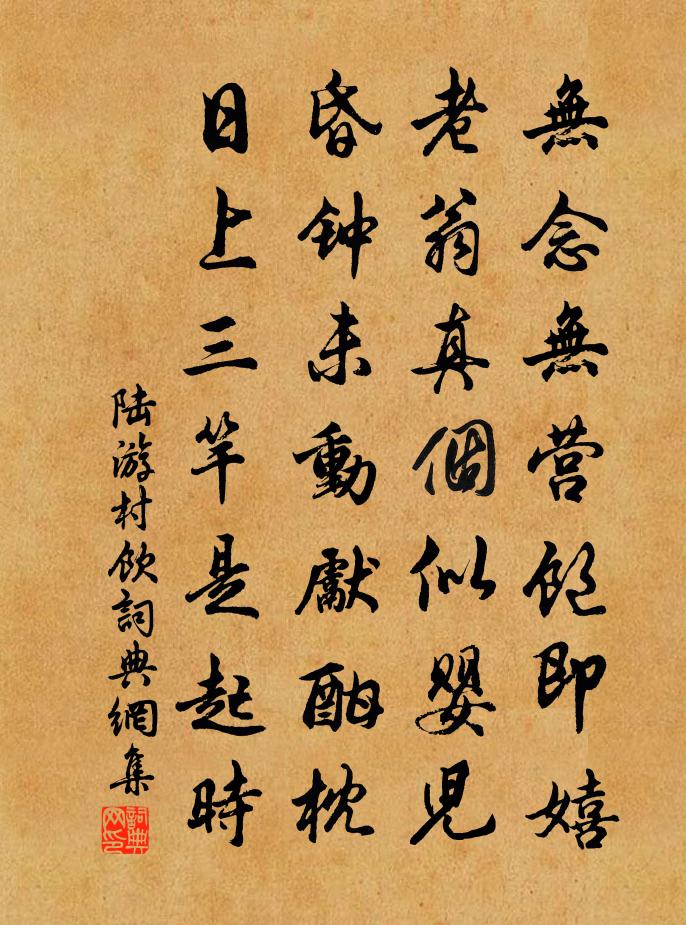 無念無营飽即嬉
老翁真個似嬰兒
昏钟未動獻酣枕
日上三竿是起時
陆游村飲詞典網集
詞典网印